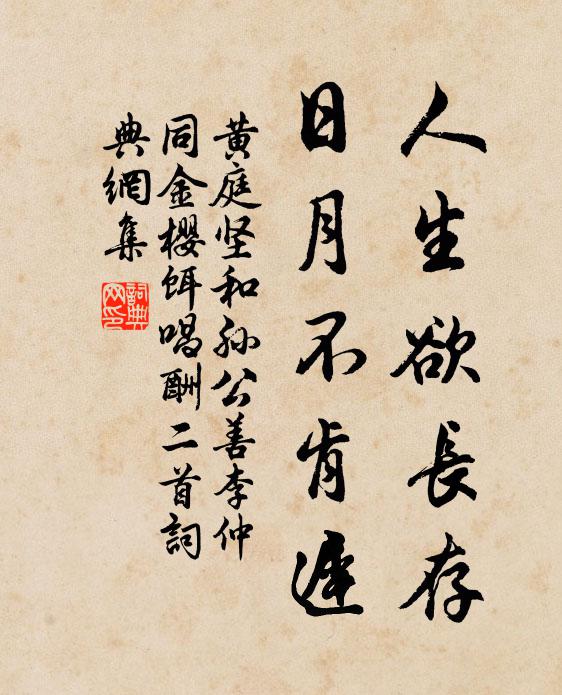 人生欲長存
日月不肯遲
黄庭坚和孙公善李仲
同金櫻餌唱酬二首詞
典網集
詞典
网印